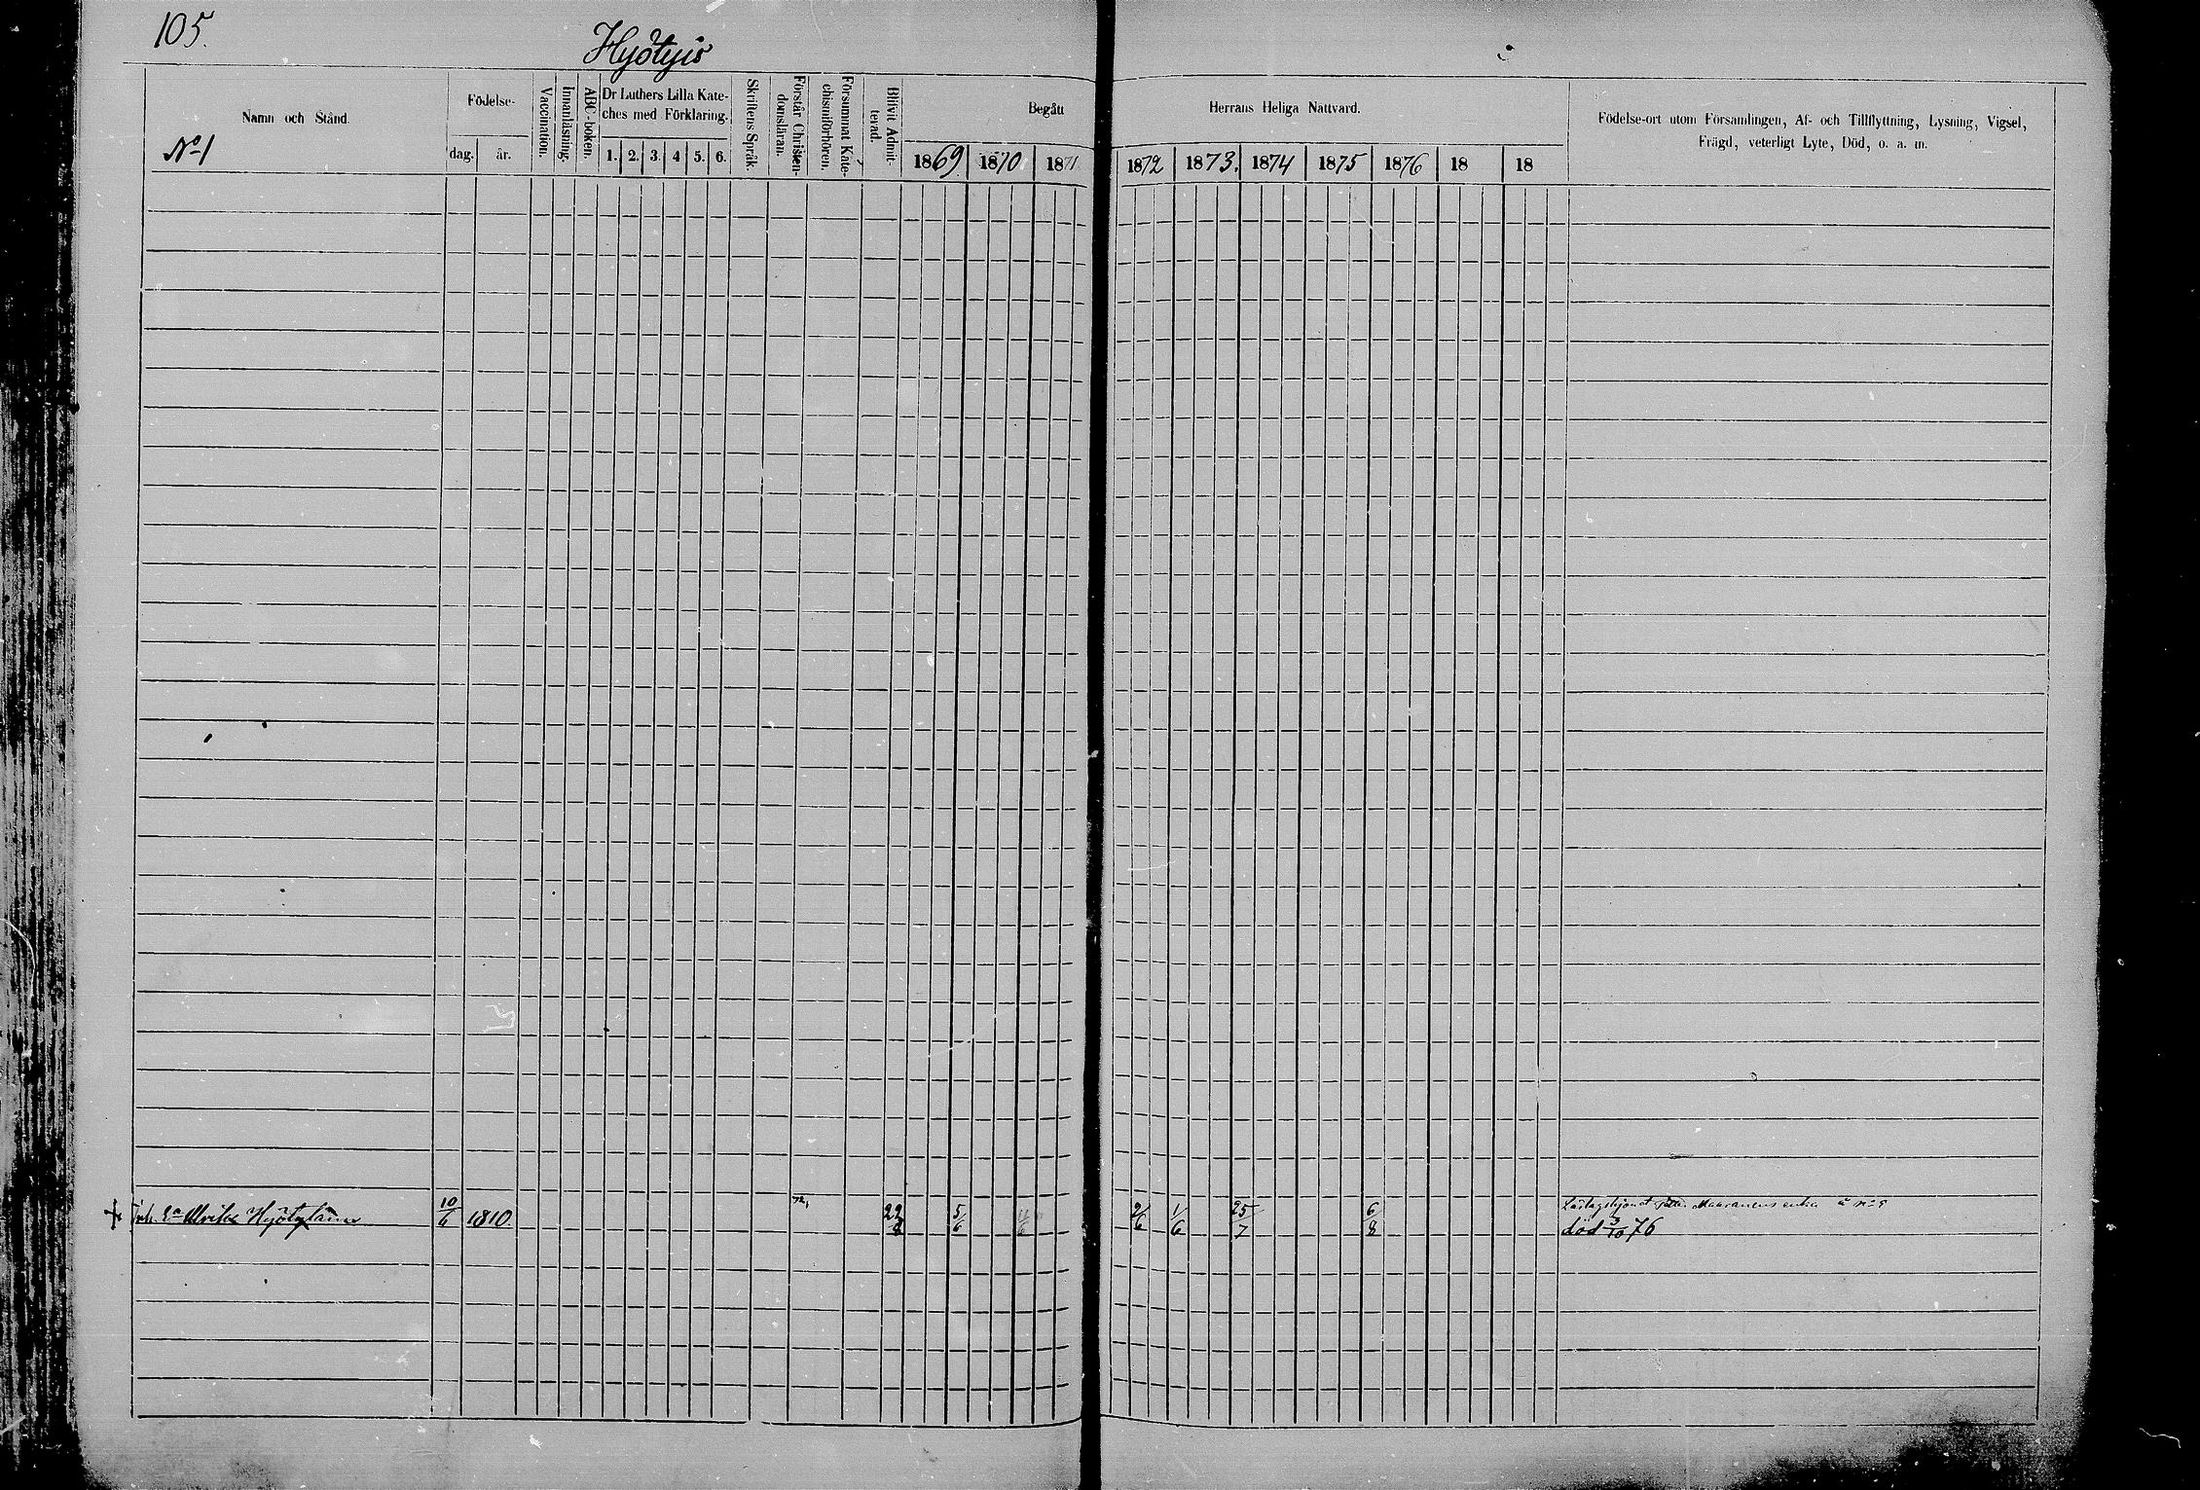 105.
Hyötyis
Namn och Stånd.
Nº 1
Födelse-
dag. år.
Vaccination.
Innanläsning.
ABC-boken.
Dr Luthers Lilla Kate-
ches med Förklaring.
1. 2. 3. 4 5. 6.
Skriftens Språk.
Förstår Christen-
domsläran.
Försummat Kate-
chismiförhören.
Blifvit Admit-
terad.
Begått
1869 1870 1871
Herrans Heliga Nattvard.
1872 1873. 1874 1875 1876 18 18
Födelse-ort utom Församlingen, Af- och Tillflyttning, Lysning, Vigsel,
Frägd, veterligt Lyte, Död, o. a. m.
Ulrika 10/6 1810 5/6 2/6 1/6 25/7 6/8 enka
död 3/10 76